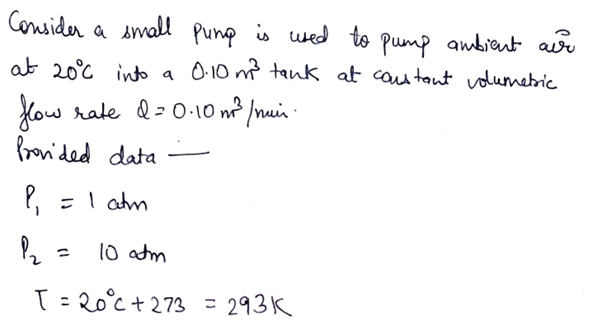 Consider a small pump is used to pump ambient air
at 20°C into a 0.10 m³ tank at constant volumetric
flow rate Q = 0.10 m³/min.
Provided data —
P₁ = 1 atm
P₂ = 10 atm
T = 20°C + 273 = 293K